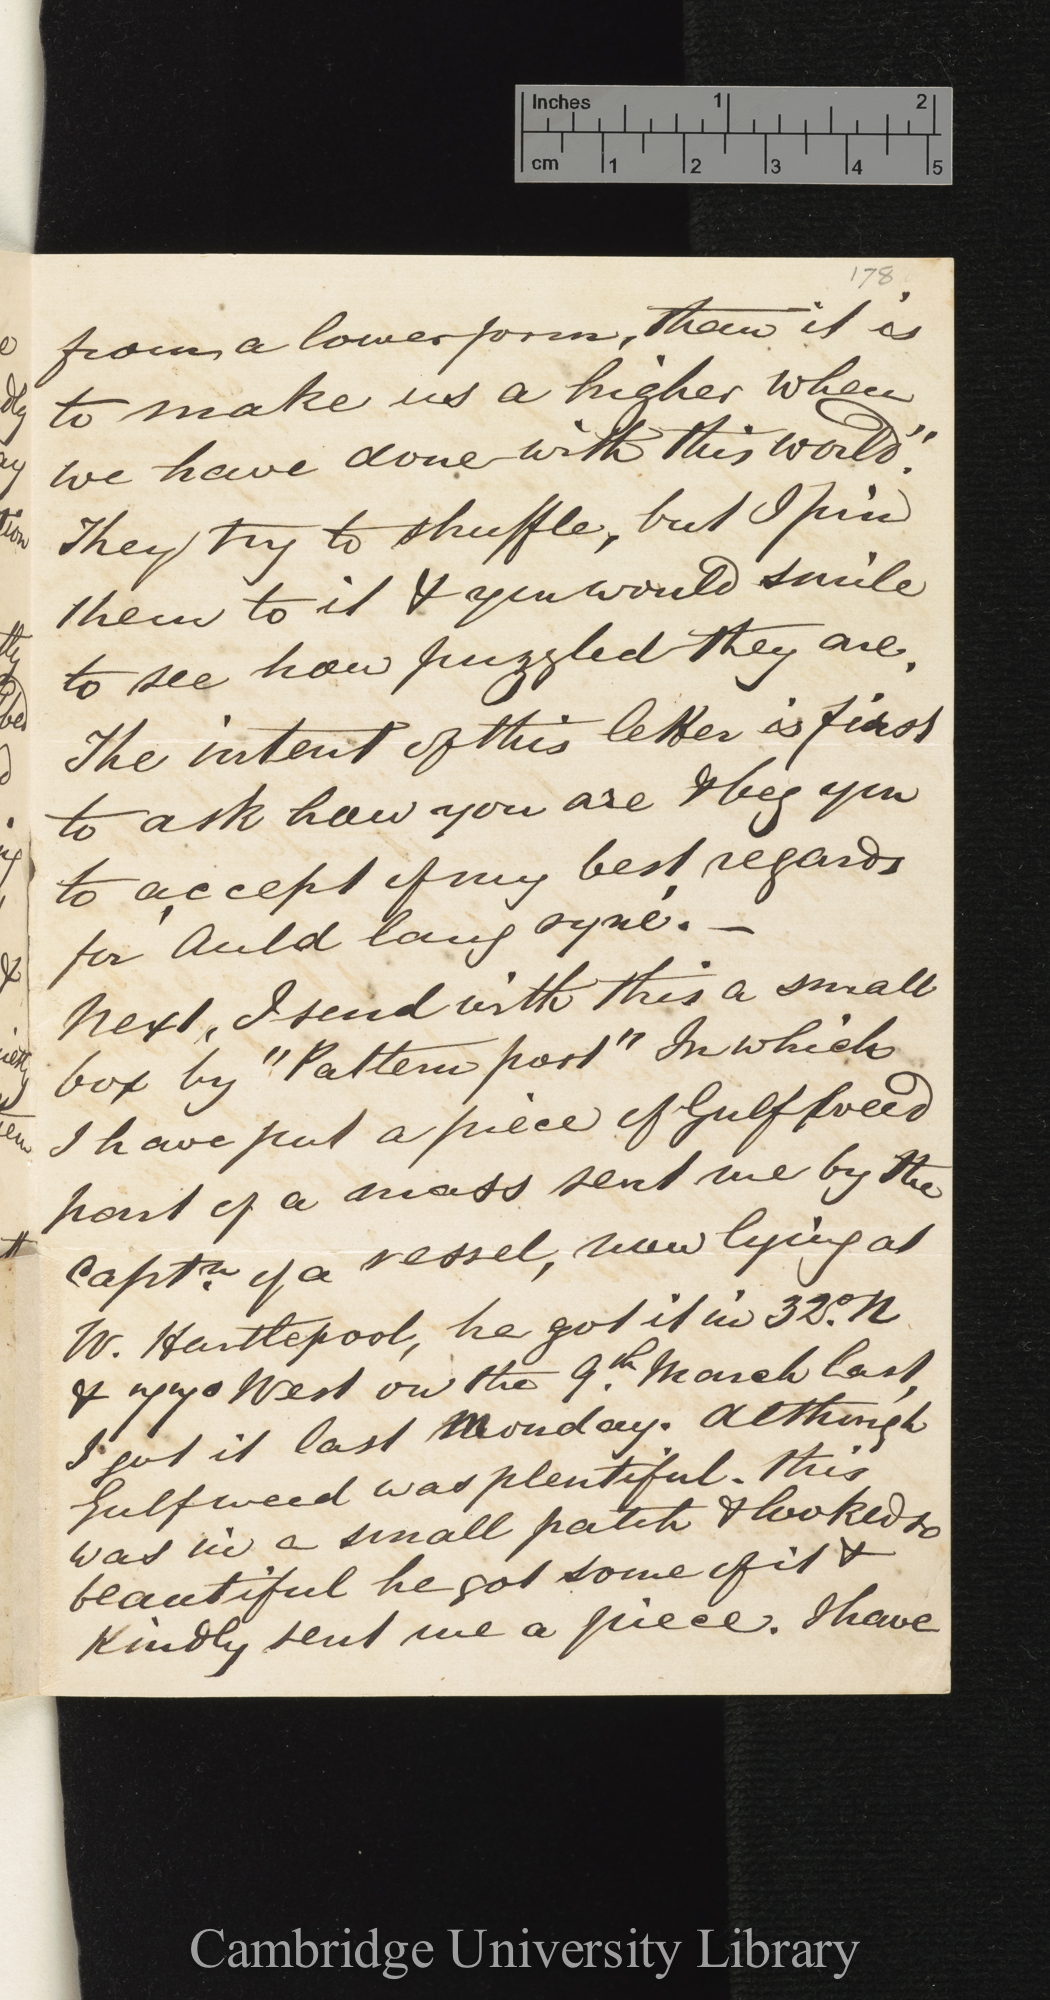 Inches 1 2
cm 1 2 3 4 5
178
from a lower form, than it is
to make us a higher when
we have done with this world".
They try to shuffle, but I pin
them to it & you would smile
to see how puzzled they are.
The intent of this letter is first
to ask how you are & beg you
to accept of my best regards
for 'Auld lang syne'. —
Next, I send with this a small
box by "Pattern post" In which
I have put a piece of Gulf weed
part of a mass sent me by the
Captn. of a vessel, now lying at
W. Hartlepool, he got it in 32.° N
& West on the 9th. March last,
I got it last Monday. Although
Gulf weed was plentiful. this
was in a small patch & looked so
beautiful he got some of it &
kindly sent me a piece. I have
Cambridge University Library